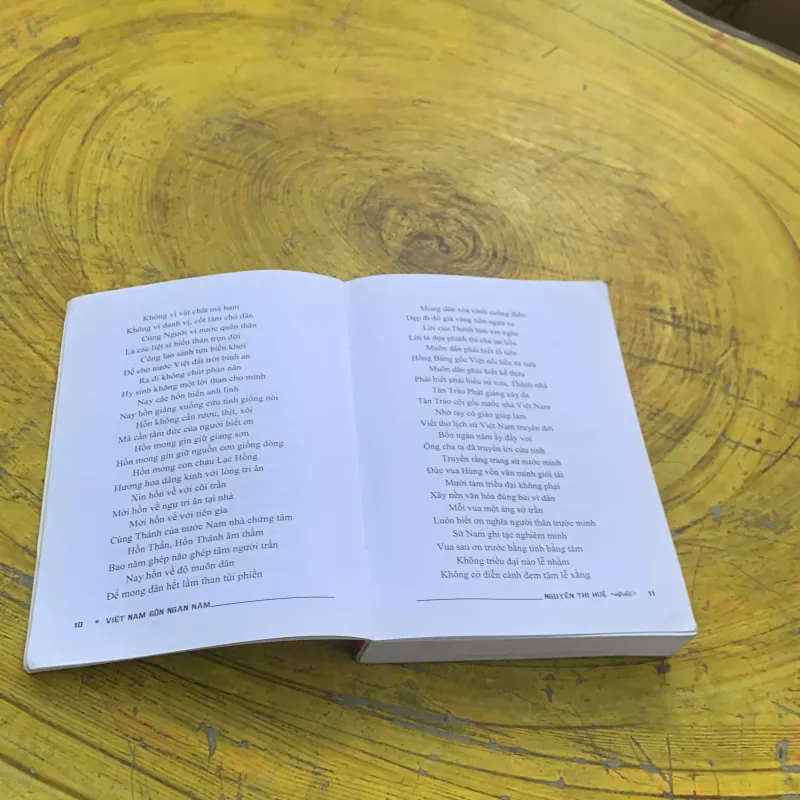 Không vì vật chất mà ham
Không vì danh vị, cốt làm cho dân
Cũng Người vì nước quên thân
Là các liệt sĩ hiến thân trọn đời
Công lao sánh tựa biển khơi
Để cho nước Việt đất trời bình an
Ra đi không chút phàn nàn
Hy sinh không một lời than cho mình
Nay các hồn hiển anh linh
Nay hồn giáng xuống cứu tinh giống nòi
Hồn không cần rượu, thịt, xôi
Mà cần tâm đức của người biết ơn
Hồn mong gìn giữ giang sơn
Hồn mong gìn giữ nguồn cơn giống dòng
Hồn mong con cháu Lạc Hồng
Hương hoa dâng kính với lòng tri ân
Xin hồn về với cõi trần
Mời hồn về ngự tri ân tại nhà
Mời hồn về với tiên gia
Cùng Thánh của nước Nam nhà chứng tâm
Hồn Thần, Hồn Thánh âm thầm
Bao năm ghép não ghép tâm người trần
Nay hồn về độ muôn dân
Để mong dân hết lầm than tủi phiền
10 VIỆT NAM BỐN NGÀN NĂM
Mong dân xóa cảnh cuồng điên
Dẹp đi đồ giả vàng tiền ngựa xe
Lời của Thánh bảo xin nghe
Muôn dân phải biết tổ tiên
Hồng Bàng gốc Việt nối liền từ xưa
Muôn dân phải biết kế thừa
Phải biết phải hiểu sử xưa, Thánh nhà
Tân Trào Phật giáng cây đa
Tân Trào cội gốc nước nhà Việt Nam
Nhờ tay cô giáo giúp làm
Viết thơ lịch sử Việt Nam truyền đời
Bốn ngàn năm ấy đầy vơi
Ông cha ta đã truyền lời cứu tinh
Truyền rằng trang sử nước mình
Đức vua Hùng vốn văn minh giỏi tài
Mười tám triều đại không phai
Xây nền văn hóa đúng bài vì dân
Mỗi vua một áng sử trần
Luôn biết ơn nghĩa người thân trước mình
Sử Nam ghi tạc nghiêm minh
Vua sau ơn trước bằng tình bằng tâm
Không triều đại nào lễ nhầm
Không có diễn cảnh đem tâm lễ xằng
NGUYỄN THỊ HUÊ 11